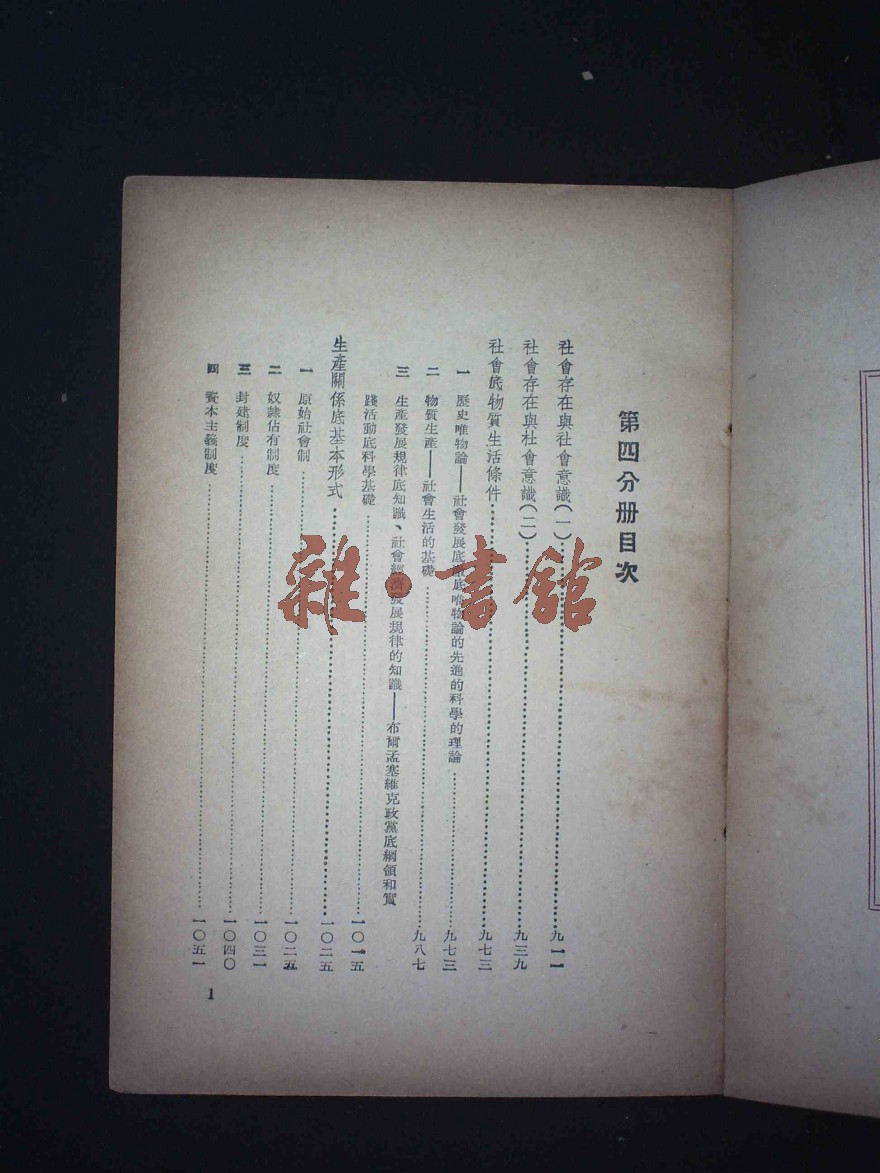 第四分册目次
社會存在與社會意識(一)……九一一
社會存在與社會意識(二)……九三九
社會底物質生活條件……九七三
一 歷史唯物論——社會發展底徹底唯物論的先進的科學的理論……九七三
二 物質生產——社會生活的基礎……九八七
三 生產發展規律底知識、社會經濟發展規律的知識——布爾孟塞維克政黨底綱領和實
踐活動底科學基礎……一〇一五
生產關係底基本形式……一〇二五
一 原始社會制……一〇二五
二 奴隸佔有制度……一〇三一
三 封建制度……一〇四〇
四 資本主義制度……一〇五一
1
雜·書館